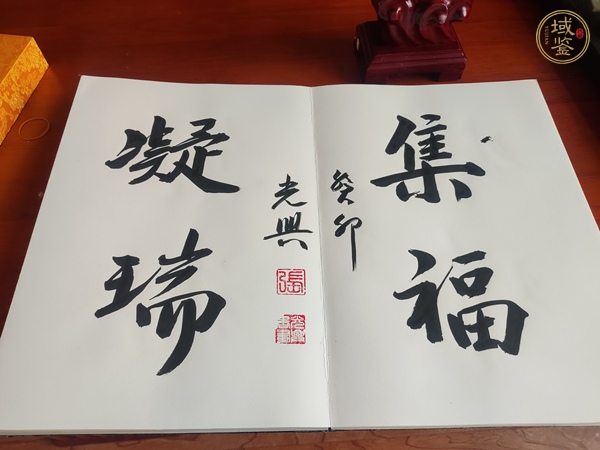 集福
凝瑞
癸卯
光興
張
域鉴
YUJIAN